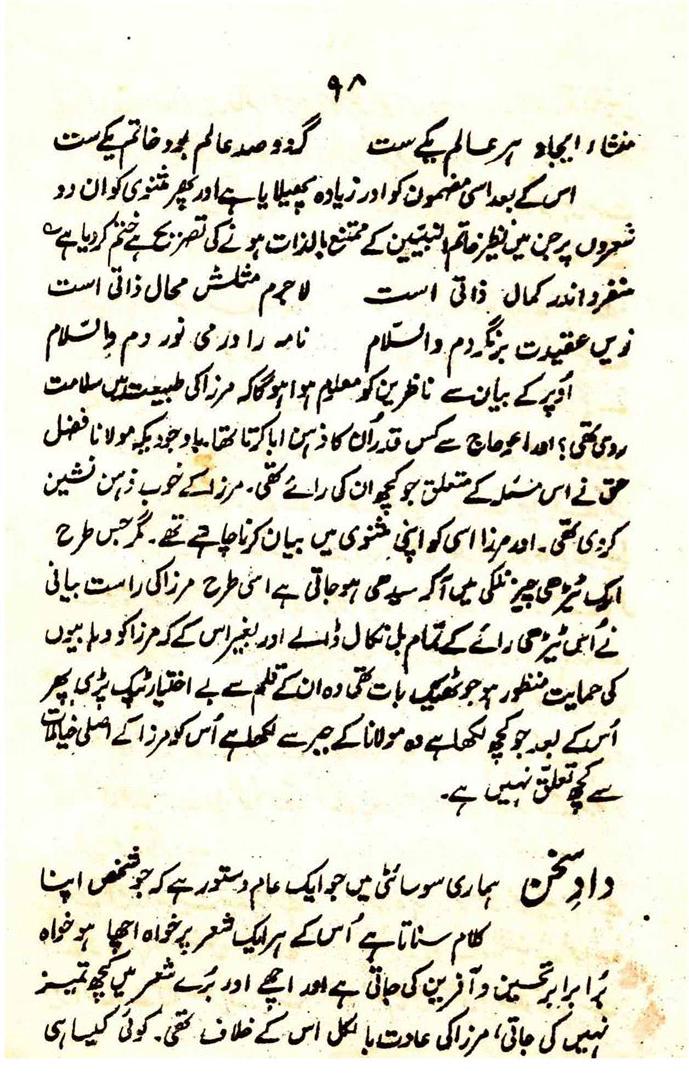 ۹۸
منشاء ایجاد ہر عالم یکے ست گر دو صد عالم بود خاتم یکے ست
اس کے بعد اسی مضمون کو اور زیادہ پھیلایا ہے اور پھر مثنوی کو ان دو
شعروں پر جن میں نظیر خاتم النبیین کے ممتنع بالذات ہونے کی تصریح ہے ختم کر دیا ہے
منفرد اندر کمال ذاتی است لاجرم مثلش محال ذاتی است
زیں عقیدت برنگردم والسّلام نامہ را در می نوردم والسّلام
اُوپر کے بیان سے ناظرین کو معلوم ہوا ہوگا کہ مرزا کی طبیعت میں سلامت
روی تھی؟ اور اعوجاج سے کس قدر اُن کا ذہن ابا کرتا تھا۔ باوجودیکہ مولانا فضل
حق نے اس مسئلہ کے متعلق جو کچھ ان کی رائے تھی۔ مرزا کے خوب ذہن نشین
کردی تھی۔ اور مرزا اسی کو اپنی مثنوی میں بیان کرنا چاہتے تھے۔ مگر جس طرح
ایک ٹیڑھی چیز نلکی میں آکر سیدھی ہو جاتی ہے اسی طرح مرزا کی راست بیانی
نے اُس ٹیڑھی رائے کے تمام بل نکال ڈالے اور بغیر اس کے کہ مرزا کو وہابیوں
کی حمایت منظور ہو جو ٹھیک بات تھی وہ ان کے قلم سے بے اختیار ٹپک پڑی پھر
اُس کے بعد جو کچھ لکھا ہے وہ مولانا کے جبر سے لکھا ہے اُس کو مرزا کے اصلی خیالات
سے کچھ تعلّق نہیں ہے۔
دادِ سخن ہماری سوسائٹی میں جو ایک عام دستور ہے کہ جو شخص اپنا
کلام سناتا ہے اُس کے ہر ایک شعر پر خواہ اچھا ہو خواہ
بُرا برابر تحسین و آفرین کی جاتی ہے اور اچھے اور بُرے شعر میں کچھ تمیز
نہیں کی جاتی، مرزا کی عادت بالکل اس کے خلاف تھی۔ کوئی کیسا ہی